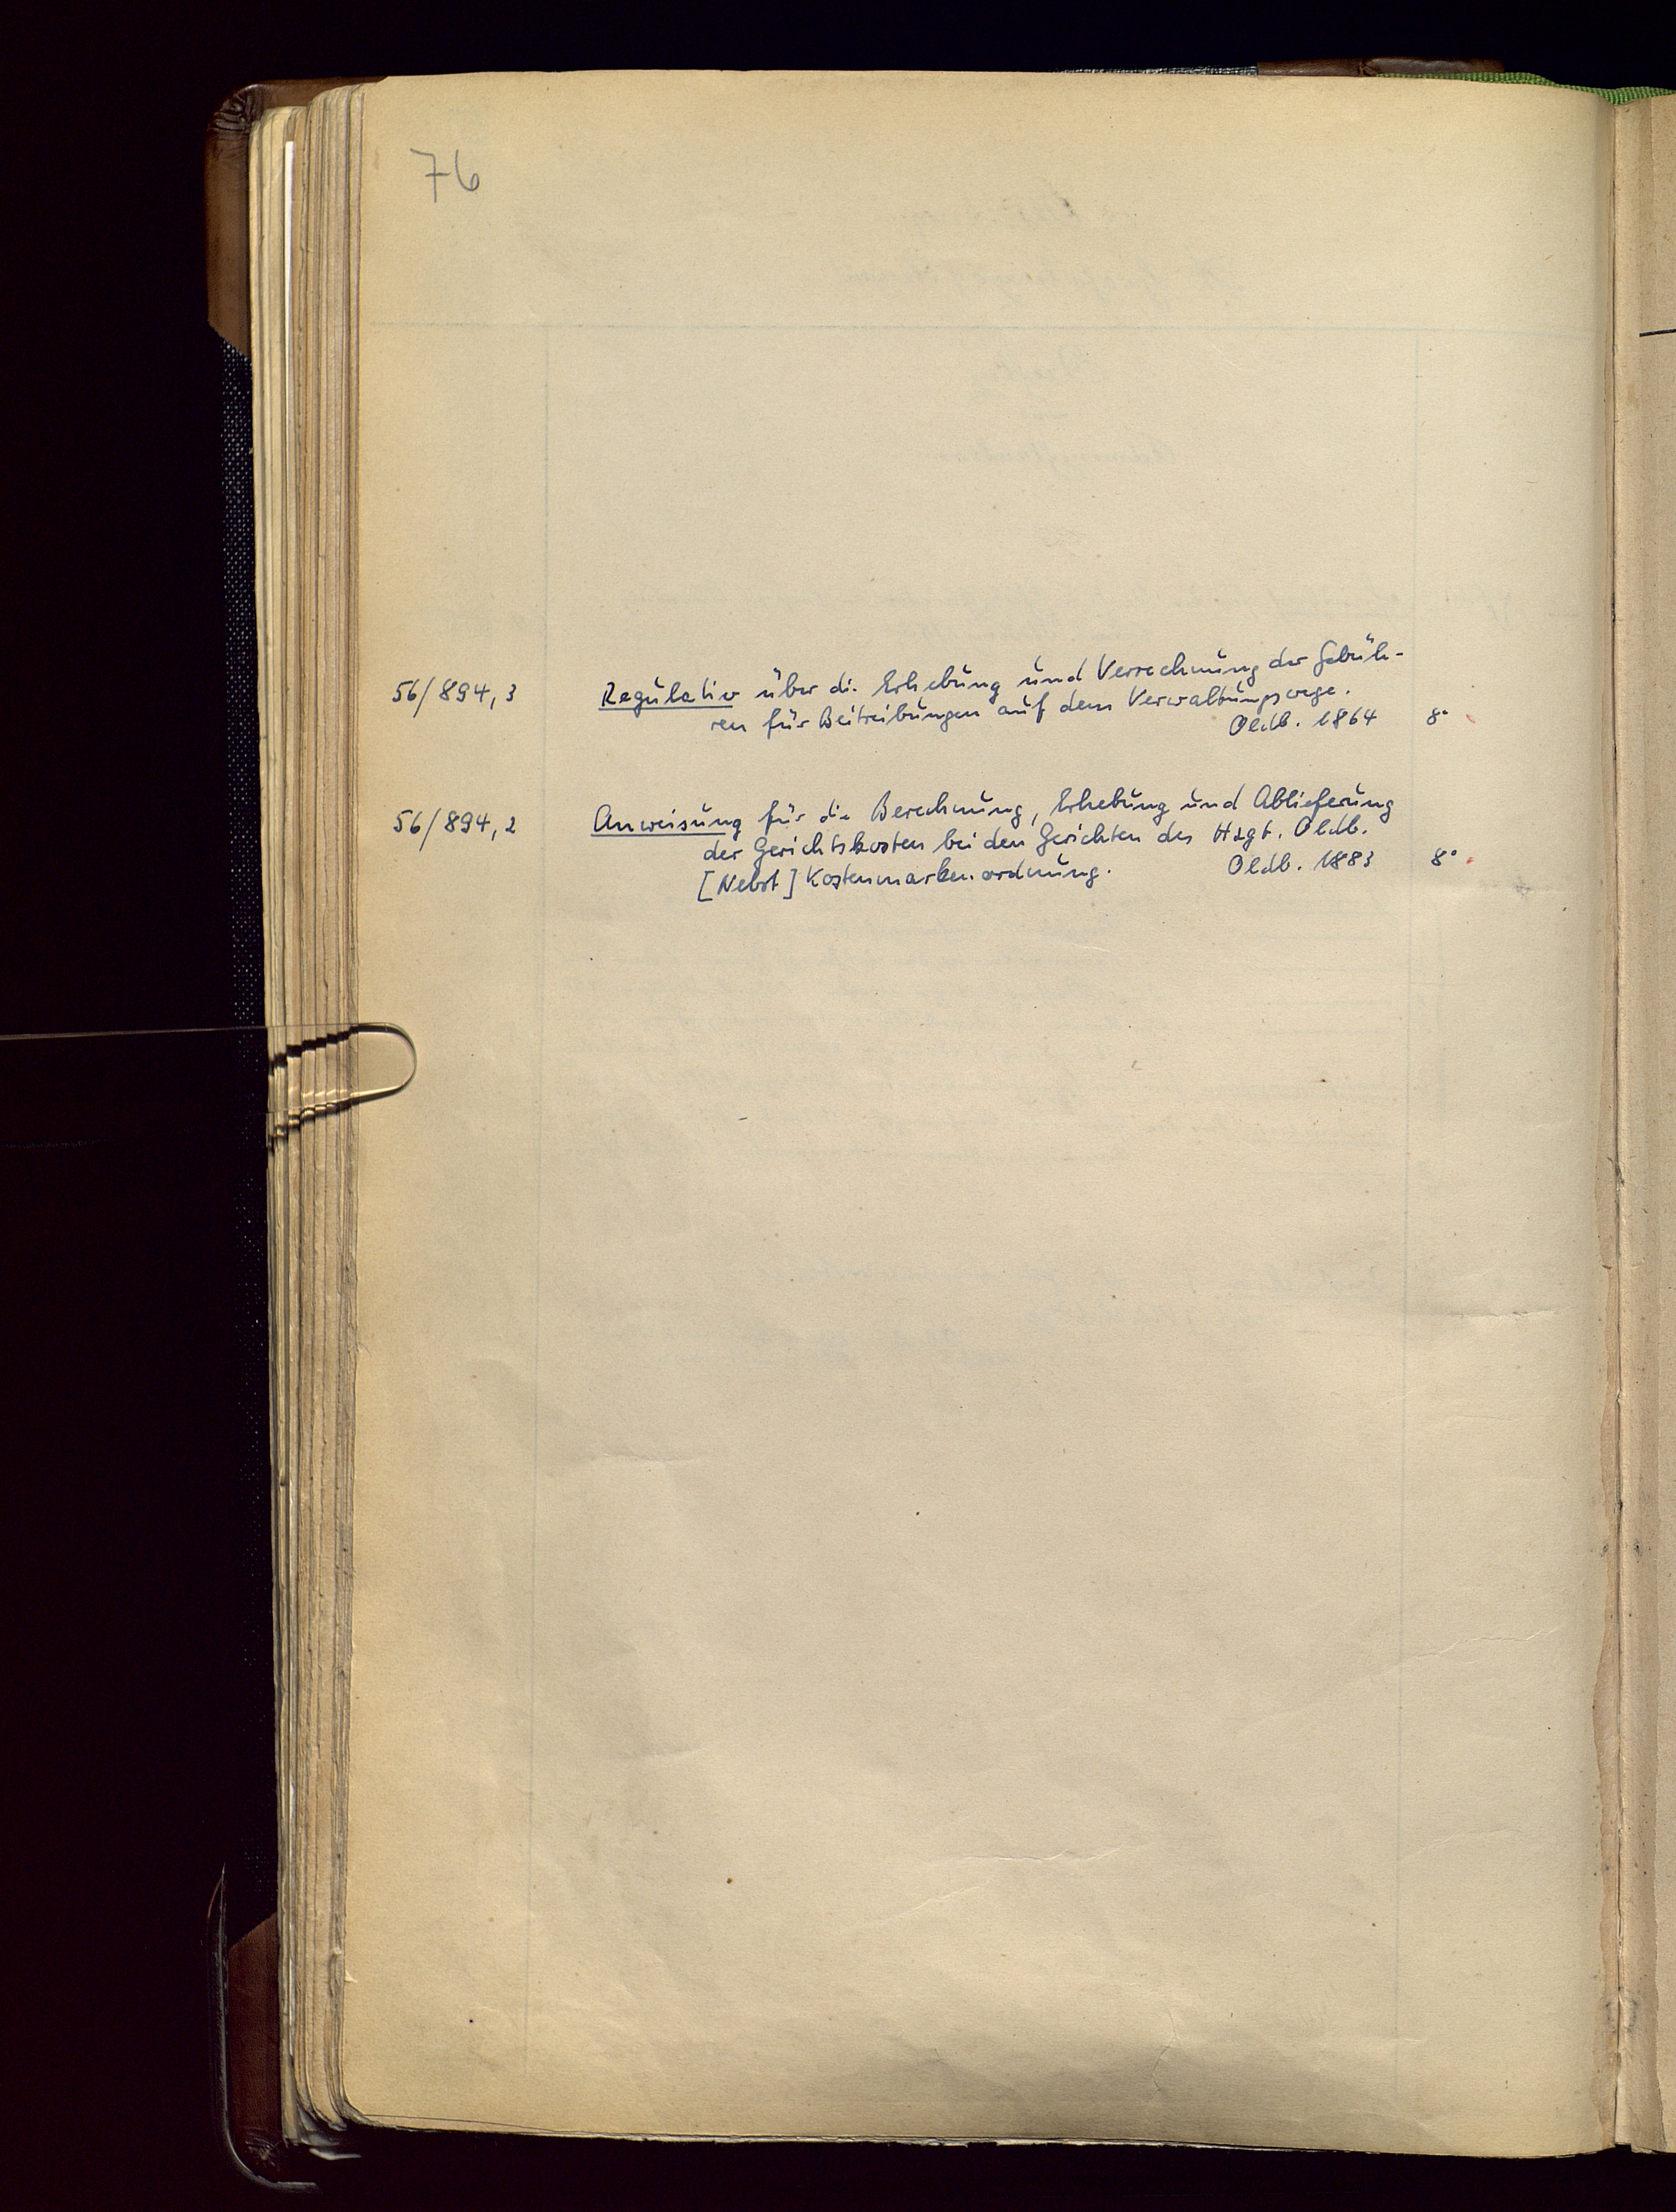 76
56/894,3 Regulativ über die Erhebung und Verrechnung der Gebüh-
ren für Beitreibungen auf dem Verwaltungswege.
Oldb. 1864 8°
56/894,2 Anweisung für die Berechnung, Erhebung und Ablieferung
der Gerichtskosten bei den Gerichten des Hzgt. Oldb.
[Nebst] Kostenmarkenordnung. Oldb. 1883 8°